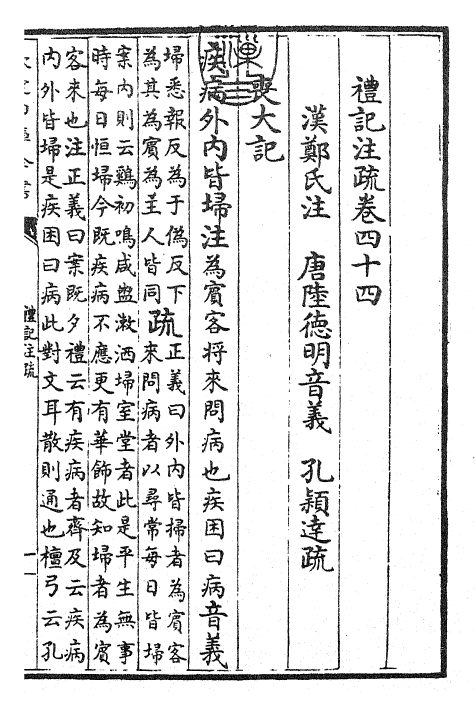 禮記注疏卷四十四
漢鄭氏注　唐陸德明音義　孔穎達疏
喪大記
疾病外内皆埽注為賓客將來問病也疾困曰病音義
埽悉報反為于偽反下
為其為賓為主人皆同
疏
正義曰外内皆掃者為賓客
來問病者以尋常每日皆埽
案内則云鷄初鳴咸盥漱洒埽室堂者此是平生無事
時每日恒埽今既疾病不應更有華飾故知埽者為賓
客來也注正義曰案既夕禮云有疾病者齊及云疾病
内外皆埽是疾困曰病此對文耳散則通也檀弓云孔
禮記注疏
一